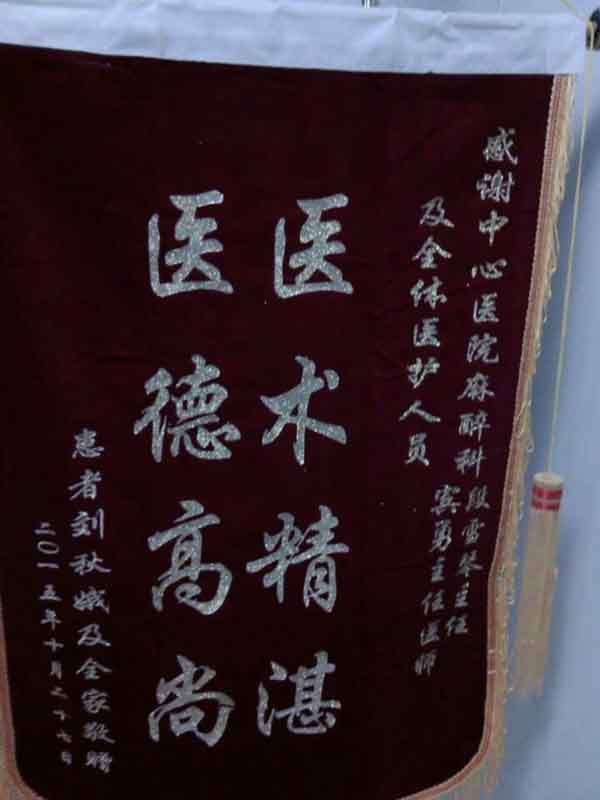 感谢中心医院麻醉科段雪琴主任
宾勇主任医师
及全体医护人员
医术精湛
医德高尚
患者刘秋娥及全家敬赠
二〇一五年十月二十六日